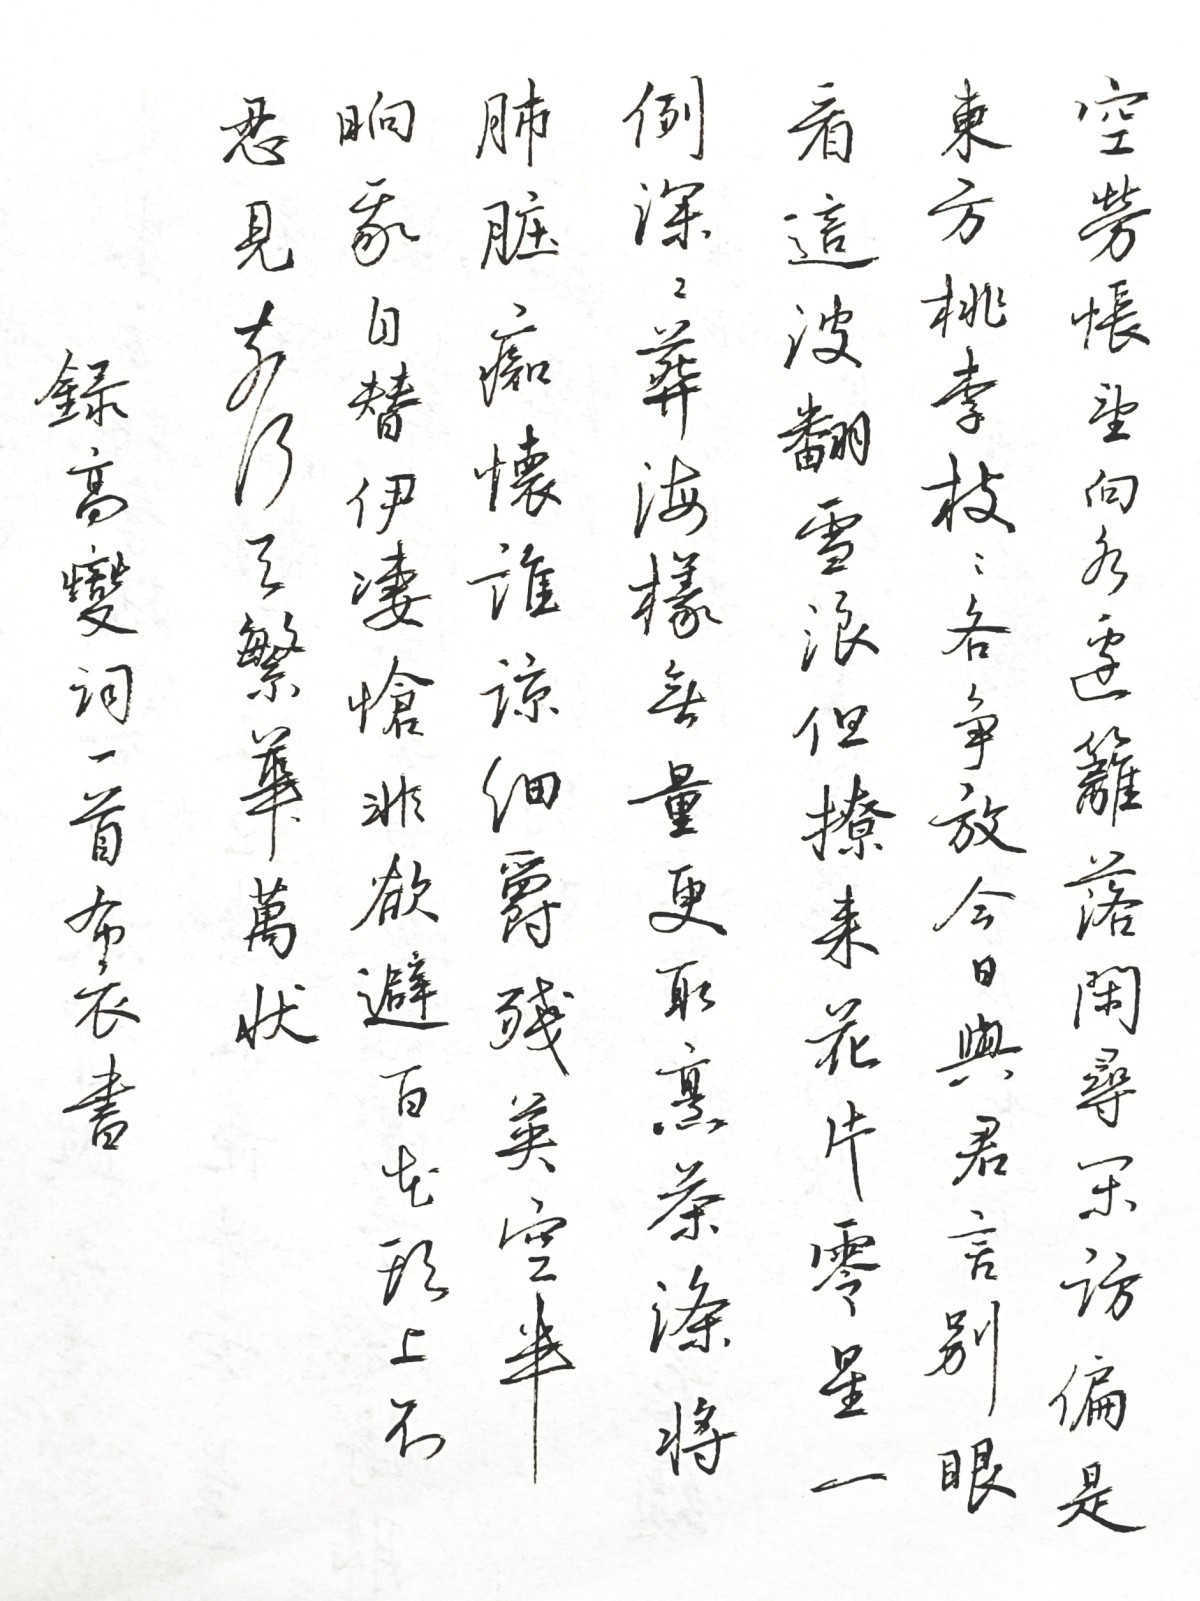 空勞悵望向水邊籬落閑尋閑訪偏是
東方桃李枝〻各爭放今日與君言别眼
看這波翻雪浪但撩来花片零星一
例深〻葬海樣無量更取烹茶滌將
肺脏痴懷誰諒細爵殘英空半
晌我自替伊凄愴非欲避百花頭上不
忍見春行之繁華萬狀
録高燮词一首布衣書